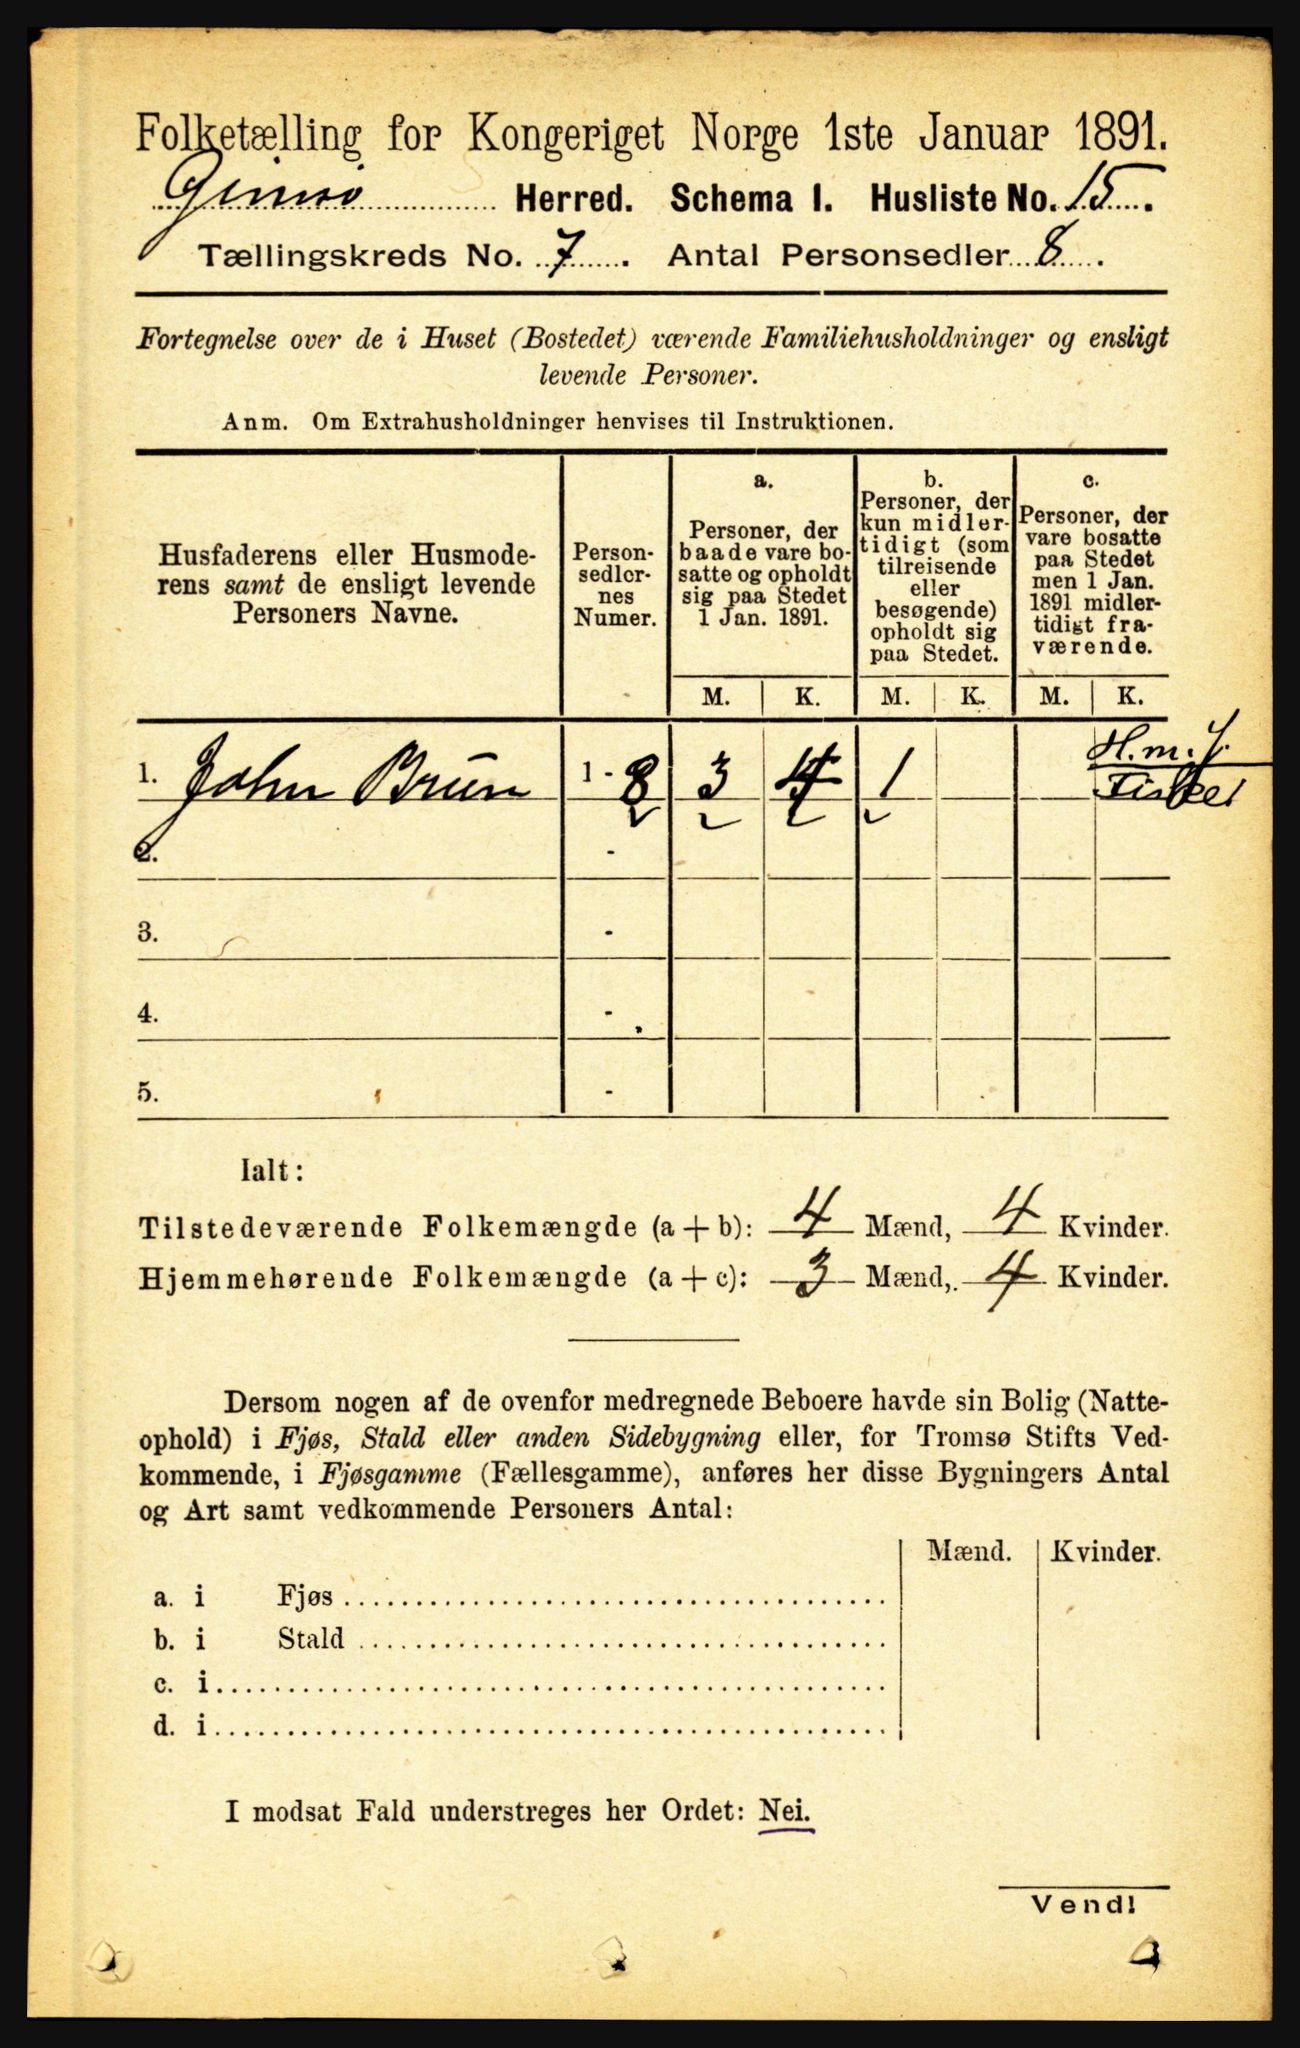 Folketælling for Kongeriget Norge 1ste Januar 1891.
Gimsø Herred. Schema I. Husliste No. 15.
Tællingskreds No. 7. Antal Personsedler 8.
Fortegnelse over de i Huset (Bostedet) værende Familiehusholdninger og ensligt
levende Personer.
Anm. Om Extrahusholdninger henvises til Instruktionen.
Husfaderens eller Husmode-
rens samt de ensligt levende
Personers Navne.
Person-
sedler-
nes
Numer.
a.
Personer, der
baade vare bo-
satte og opholdt
sig paa Stedet
1 Jan. 1891.
b.
Personer, der
kun midler-
tidigt (som
tilreisende
eller
besøgende)
opholdt sig
paa Stedet.
c.
Personer, der
vare bosatte
paa Stedet
men 1 Jan.
1891 midler-
tidigt fra-
værende.
M. K. M. K. M. K.
1. John Brun 1 - 8 3 4 1 H. m. J.
Fisker
2. -
3. -
4. -
5. -
Ialt:
Tilstedeværende Folkemængde (a + b): 4 Mænd, 4 Kvinder.
Hjemmehørende Folkemængde (a + c): 3 Mænd, 4 Kvinder.
Dersom nogen af de ovenfor medregnede Beboere havde sin Bolig (Natte-
ophold) i Fjøs, Stald eller anden Sidebygning eller, for Tromsø Stifts Ved-
kommende, i Fjøsgamme (Fællesgamme), anføres her disse Bygningers Antal
og Art samt vedkommende Personers Antal:
Mænd. Kvinder.
a. i Fjøs
b. i Stald
c. i
d. i
I modsat Fald understreges her Ordet: Nei.
Vend!